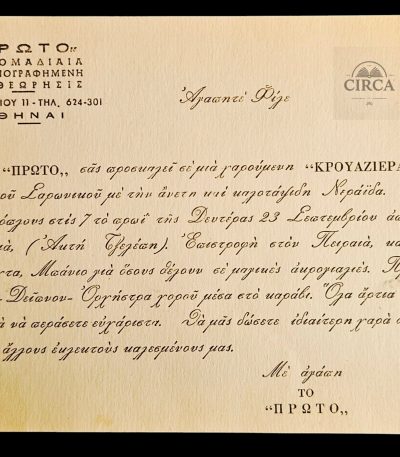 ΡΩΤΟ„
ΟΜΑΔΙΑΙΑ
ΝΟΓΡΑΦΗΜΕΝΗ
ΘΕΩΡΗΣΙΣ
ΙΟΥ 11 - ΤΗΛ. 624-301
ΘΗΝΑΙ
CIRCA
Ἀγαπητέ Φίλε
"ΠΡΩΤΟ„ σᾶς προσκαλεῖ σέ μιά χαρούμενη "ΚΡΟΥΑΖΙΕΡΑ
οῦ Σαρωνικοῦ μέ τήν ἄνετη καί καλοτάξιδη Νεράϊδα.
όπλους στίς 7 τό πρωΐ τῆς Δευτέρας 23 Σεπτεμβρίου ἀπ
ιᾶ, (Ἀκτή Τζελέπη). Ἐπιστροφή στόν Πειραιᾶ, κα
τα, Μπάνιο γιά ὅσους θέλουν σέ μαγικές ἀκρογιαλιές. Πρ
- Δεῖπνον - Ὀρχήστρα χοροῦ μέσα στό καράβι. Ὅλα ἄρτια
ά νά περάσετε εὐχάριστα. Θά μᾶς δώσετε ἰδιαίτερη χαρά
ἄλλους ἐκλεκτούς καλεσμένους μας.
Μέ ἀγάπη
ΤΟ
"ΠΡΩΤΟ„